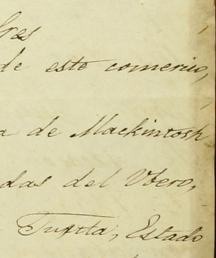 de este comercio,
a de Mackintosh
das del Ubero,
Tuxtla, Estado